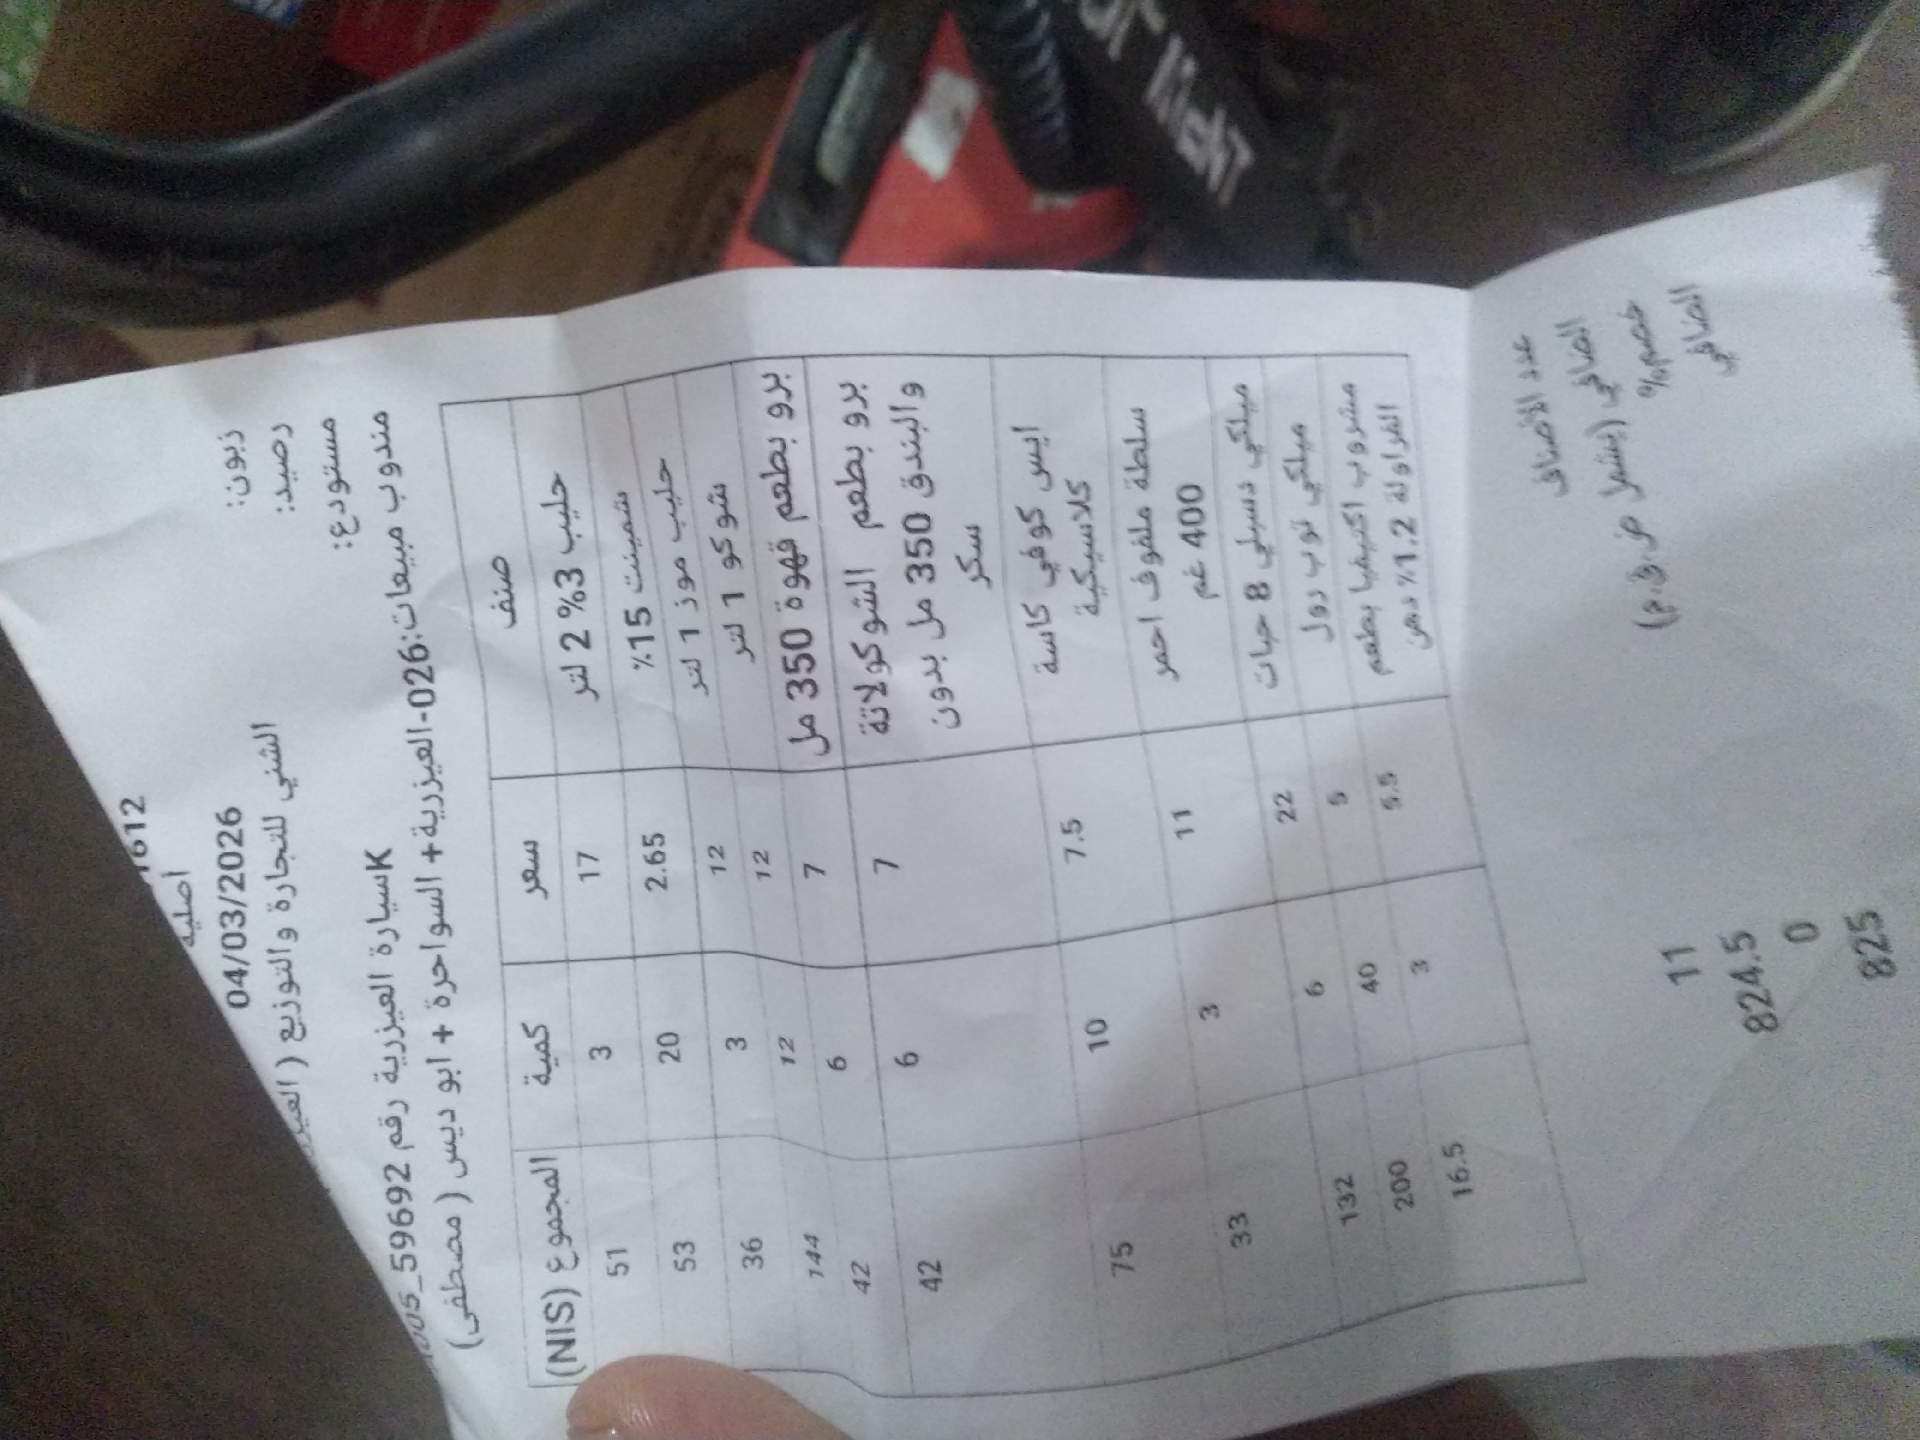 1612
اصلية
04/03/2026
زبون: الشني للتجارة والتوزيع (
رصيد:
مستودع: Kسيارة العيزرية رقم 59692_
مندوب مبيعات:026-العيزرية+ السواحرة + ابو ديس ( مصطفى)
صنف سعر كمية المجموع (NIS)
حليب 3% 2 لتر 17 3 51
شمينت 15% 2.65 20 53
حليب موز 1 لتر 12 3 36
شوكو 1 لتر 12 12 144
برو بطعم قهوة 350 مل 7 6 42
برو بطعم الشوكولاتة 7 6 42
والبندق 350 مل بدون
سكر
ايس كوفي كاسة 7.5 10 75
كلاسيكية
سلطة ملفوف احمر 11 3 33
400 غم
ميلكي دسبلي 8 حبات 22 6 132
ميلكي توب رول 5 40 200
مشروب اكتيفيا بطعم 5.5 3 16.5
الفراولة 1.2% دهن
عدد الأصناف 11
الصافي (يشمل ض.ق.م) 824.5
خصم% 0
الصافي 825
TNT